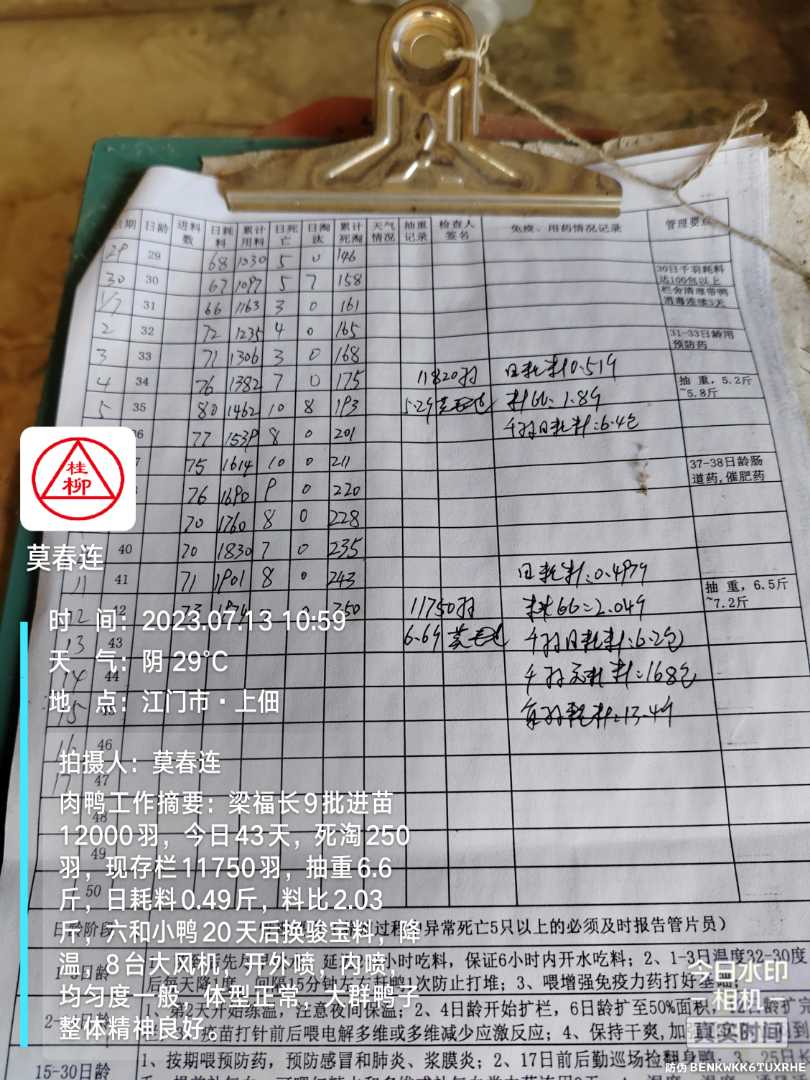 日期 日龄 进料数 日耗料 累计用料 日死亡 日淘汰 累计死淘 天气情况 抽重记录 检查人签名 免疫、用药情况记录 管理要点
29 29 68 1030 5 0 146
30 30 67 1097 5 7 158 30日千羽耗料达100包以上
1/7 31 66 1163 3 0 161 栏舍清理带鸭消毒连续3天
2 32 72 1235 4 0 165 31-33日龄用预防药
3 33 71 1306 3 0 168
4 34 76 1382 7 0 175 11820羽 日耗料0.51斤 抽重,5.2斤~5.8斤
5 35 80 1462 10 8 193 5.2斤 莫春连 料比:1.8斤
36 77 1539 8 0 201 千羽日耗料:6.4包
75 1614 10 0 211 37-38日龄肠道药,催肥药
76 1690 9 0 220
70 1760 8 0 228
40 70 1830 7 0 235
11 41 71 1901 8 0 243 日耗料:0.497斤 抽重,6.5斤~7.2斤
12 42 73 1974 250 11750羽 料比=2.04斤
13 43 6.6斤 莫春连 千羽日耗料:6.2包
14 44 千羽总耗料:168包
15 每羽耗料:13.4斤
46
47
48
49
50
桂柳
莫春连
时 间:2023.07.13 10:59
天 气:阴 29℃
地 点:江门市·上佃
拍摄人:莫春连
肉鸭工作摘要:梁福长9批进苗
12000羽,今日43天,死淘250
羽,现存栏11750羽,抽重6.6
斤,日耗料0.49斤,料比2.03
斤,六和小鸭20天后换骏宝料,降
温,8台大风机,开外喷,内喷,
均匀度一般,体型正常,大群鸭子
整体精神良好。
日龄阶段 过程中异常死亡5只以上的必须及时报告管片员)
小时吃料,保证6小时内开水吃料;2、1-3日温度32-30度
15分钟左右赶鸭1次防止打堆;3、喂增强免疫力药打好基础;
第2天开始练温,注意夜间保温;2、4日龄开始扩栏,6日龄扩至50%面积,
疫苗打针前后喂电解多维或多维减少应激反应;4、保持干爽,加
15-30日龄 1、按期喂预防药,预防感冒和肺炎、浆膜炎;2、17日前后勤巡场捡翻身鸭;3、25日
今日水印
相机
真实时间
防伪 BENKWKK6TUXRHE